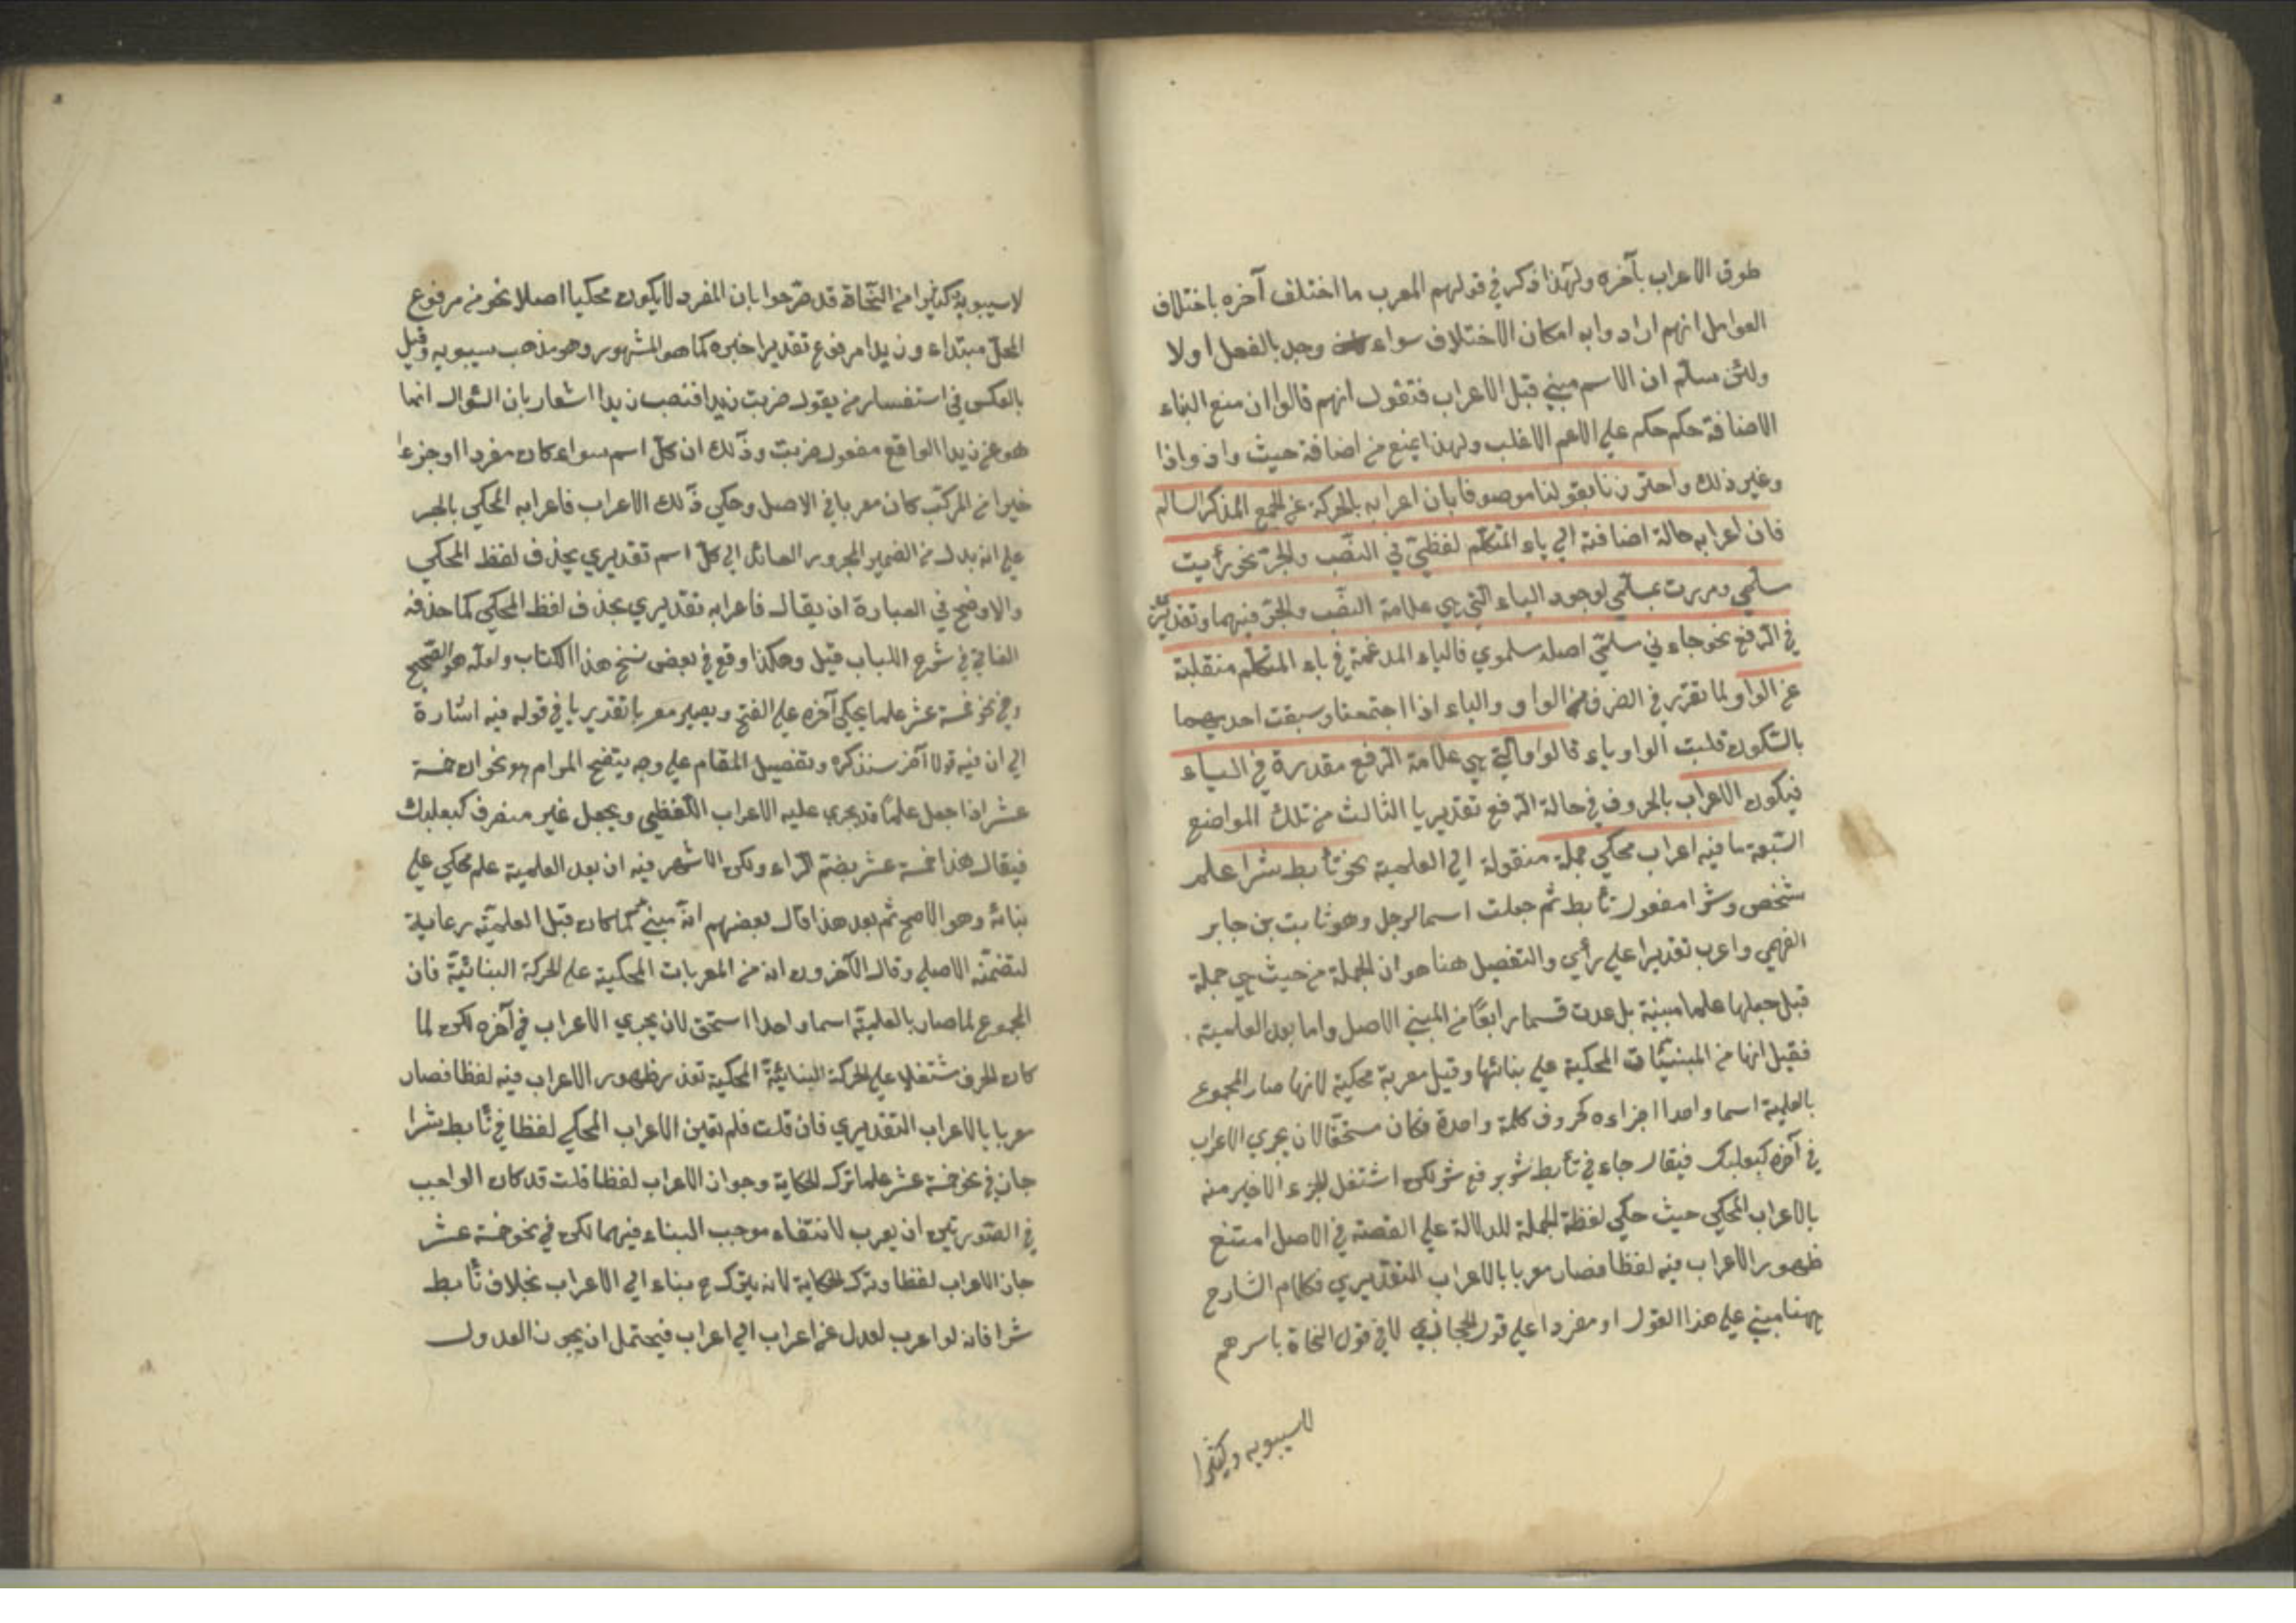 طوق الاعراب بآخره ولهذا ذكر في قولهم المعرب ما اختلف آخره باختلاف
العوامل انهم ارادوا به امكان الاختلاف سواء وجد بالفعل او لا
ولئن سلم ان الاسم مبني قبل الاعراب فنقول انهم قالوا ان منع البناء
الاضافة حكم حكم على الاعم الاغلب ولهذا يمنع من اضافة حيث واذ واذا
وغير ذلك واحترزنا بقولنا موصوفا بان اعرابه بالحركة عن الجمع المذكر السالم
فان اعرابه حالة اضافته الي ياء المتكلم لفظيّ في النصّب والجرّ نحو رأيت
سلمي ومررت بمسلمي لوجود الياء التي هي علامة النصّب والجرّ فيهما وتقديريّ
في الرفع نحو جاءني سلمّي اصله سلموي فالياء المدغمة في ياء المتكلم منقلبة
عن الواو لما تقرّر في الصرف من الواو والياء اذا اجتمعتا وسبقت احديهما
بالسّكون قلبت الواو ياء قالوا والتي هي علامة الرفع مقدرة في الياء
فيكون الاعراب بالحروف في حالة الرفع تقديريا الثالث من تلك المواضع
السّبعة ما فيه اعراب محكي جملة منقولة الي العلمية نحو تأبط شرا علم
شخص وشرّا مفعول تأبط ثم جعلت اسما لرجل وهو ثابت بن جابر
الفهمي واعرب تقديرا على رأي والتفصيل هنا هو ان الجملة من حيث هي جملة
قبل جعلها علما مبنية بل عدت قسما رابعًا من المبني الاصل واما بعد العلمية
فقيل انها من المبنيّات المحكية علي بنائها وقيل معربة محكية لانها صار المجموع
بالعلمية اسما واحدا اجزاءه كحروف كلمة واحدة فكان مستحقّا لان يجري الاعراب
في آخره كبعلبك فيقال جاءني تأبط شرّ برفع شر لكن اشتغل الجزء الاخير منه
بالاعراب المحكي حيث حكي لفظة الجملة للدلالة علي القصة في الاصل امتنع
ظهور الاعراب فيه لفظا فصار معربا بالاعراب التقديري فكلام الشارح
ههنا مبني علي هذا القول او مفردا على قول الحجازي لا في قول النحاة باسرهم
لاسيبويه وكثيرا
لاسيبويه وكثيرا من النّحاة قد صرّحوا بان المفرد لا يكون محكيا اصلا نحو من مرفوع
المحلّ مبتداء وزيدا مرفوع تقديرا خبره كما هو المشهور وهو مذهب سيبويه وقيل
بالعكس في استفسار من يقول ضربت زيدا فنصب زيدا اشعار بان السّؤال انما
هو عن زيدا الواقع مفعول ضربت وذلك ان كلّ اسم سواء كان مفردا او جزءا
خيرا من المركّب كان معربا في الاصل وحكي ذلك الاعراب فاعرابه المحكي بالجر
علي انه بدل من الضمير المجرور العائد الي كلّ اسم تقديري بحذف لفظ المحكي
والاوضح في العبارة ان يقال فاعرابه تقديري بحذف لفظ المحكي كما حذفه
الفالي في شرح اللباب قيل وهكذا وقع في بعض نسخ هذا الكتاب ولعله هو الصّحيح
وفي نحو خمسة عشر علما يحكي آخره علي الفتح ويصير معربا تقديريا في قوله فيه اشارة
الي ان فيه قولا آخر سنذكره وتفصيل المقام علي وجه يتضح المرام هو نحو ان خمسة
عشر اذا جعل علمًا قد يجري عليه الاعراب اللّفظي ويجعل غير منصرف كبعلبك
فيقال هذا خمسة عشر بضم الرّاء ولكن الاشهر فيه ان بعد العلمية علم محكي علي
بنائه وهو الاصح ثم بعد هذا قال بعضهم انه مبنيّ كما كان قبل العلميّة رعاية
لتضمّنه الاصلي وقال الآخرون انه من المعربات المحكية علي الحركة البنائيّة فان
المجموع لما صار بالعلميّة اسما واحدا استحق لان يجري الاعراب في آخره لكن لما
كان الحرف مشتغلا علي الحركة البنائيّة المحكية تعذر ظهور الاعراب فيه لفظا فصار
معربا بالاعراب التقديري فان قلت فلم تعين الاعراب المحكي لفظا في تأبط شرا
جاز في نحو خمسة عشر علما ترك الحكاية وجواز الاعراب لفظا قلت قد كان الواجب
في الصّورتين ان يعرب لانتفاء موجب البناء فيهما لكن في نحو خمسة عشر
جاز الاعراب لفظا وترك الحكاية لانه يترك ح بناء الي الاعراب بخلاف تأبط
شرا فانه لو اعرب لعدل عن اعراب الي اعراب فيحتمل ان يجوز العدول